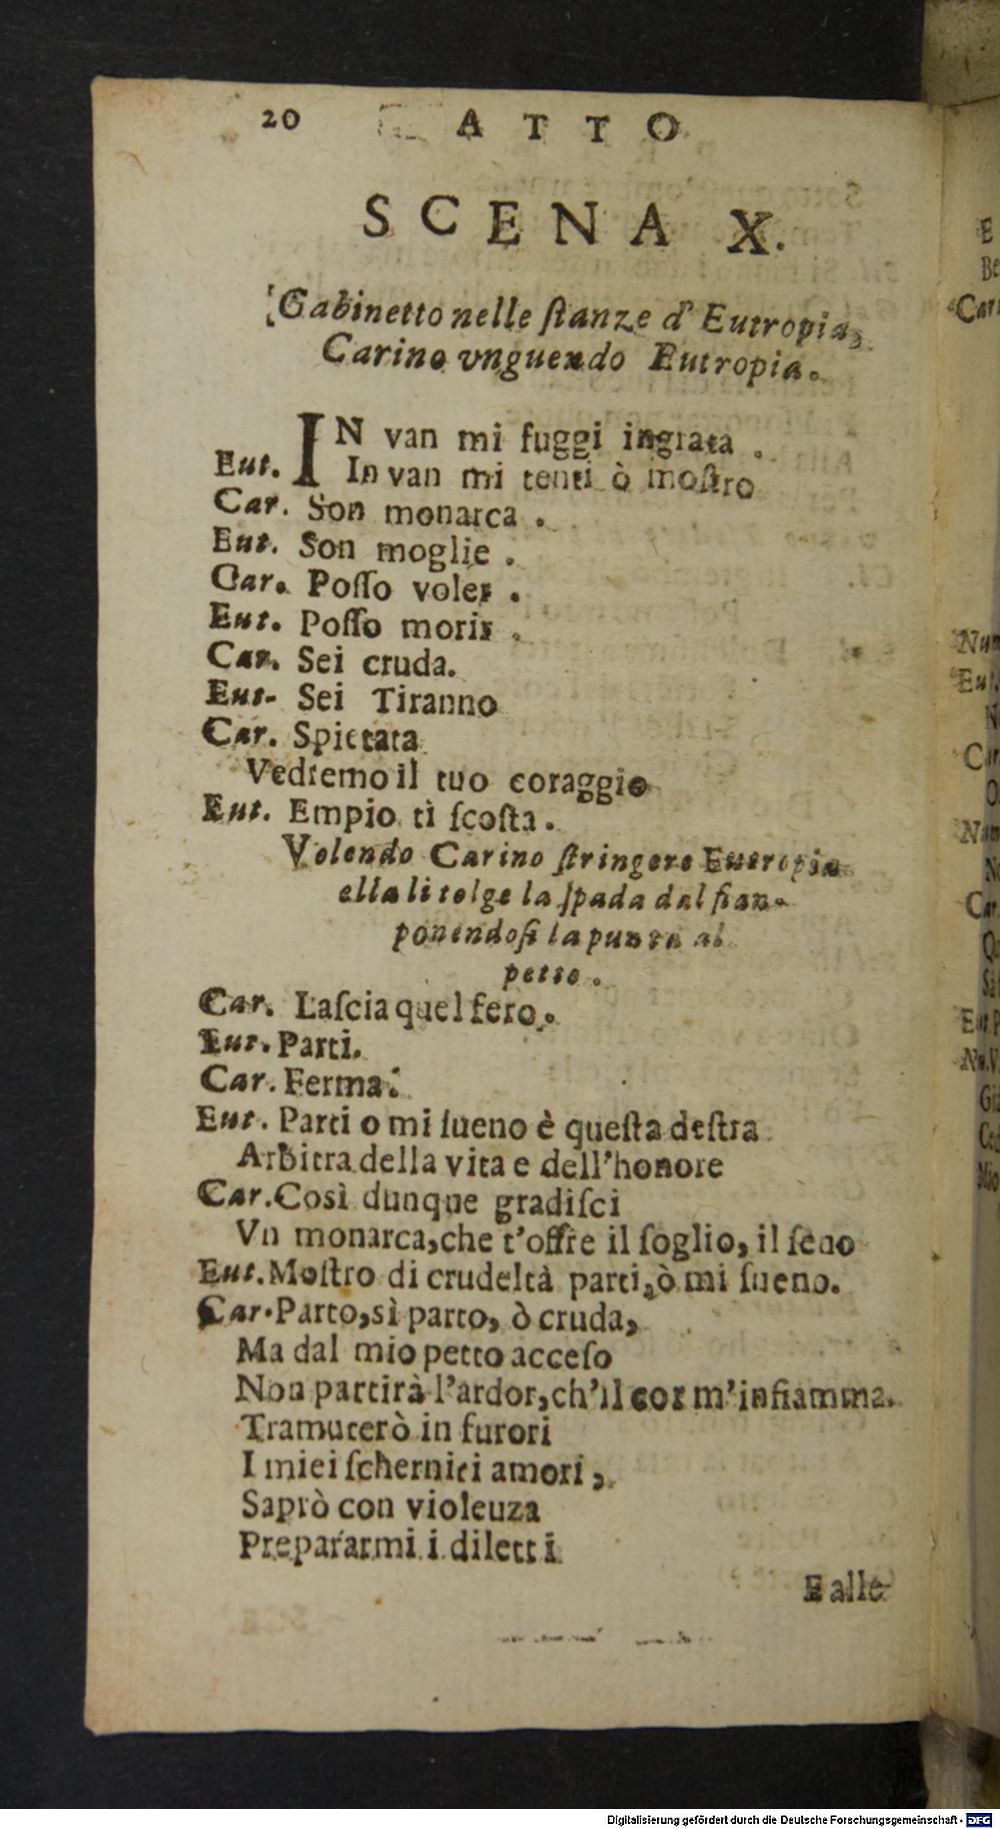 20 ATTO
SCENA X.
Gabinetto nelle ſtanze d' Eutropia,
Carino vnguendo Eutropia.
IN van mi fuggi ingrata .
Eut. In van mi tenti ò moſtro
Car. Son monarca .
Eut. Son moglie .
Car. Poſſo voler .
Eut. Poſſo morir .
Car. Sei cruda.
Eut. Sei Tiranno
Car. Spietata
Vedremo il tuo coraggio
Eut. Empio tì ſcoſta.
Volendo Carino ſtringere Eutropia
ella li tolge la ſpada dal fian-
ponendoſi la punta al
petto .
Car. Laſcia quel fero.
Eut. Parti.
Car. Ferma.
Eut. Parti o mi ſueno è queſta deſtra
Arbitra della vita e dell'honore
Car. Così dunque gradiſci
Vn monarca, che t'offre il ſoglio, il ſeno
Eut. Moſtro di crudeltà parti, ò mi ſueno.
Car. Parto, sì parto, ò cruda,
Ma dal mio petto acceſo
Non partirà l'ardor, ch'il cor m'infiamma.
Tramuterò in furori
I miei ſcherniti amori,
Saprò con violeuza
Prepararmi i diletti
E alle
E
Be
Car
Num
Eut
N
Car
O
Num
Ne
Car
Qu
Sa
Eut. P
Nu. V
Gia
Ced
Mio
Digitalisierung gefördert durch die Deutsche Forschungsgemeinschaft - DFG